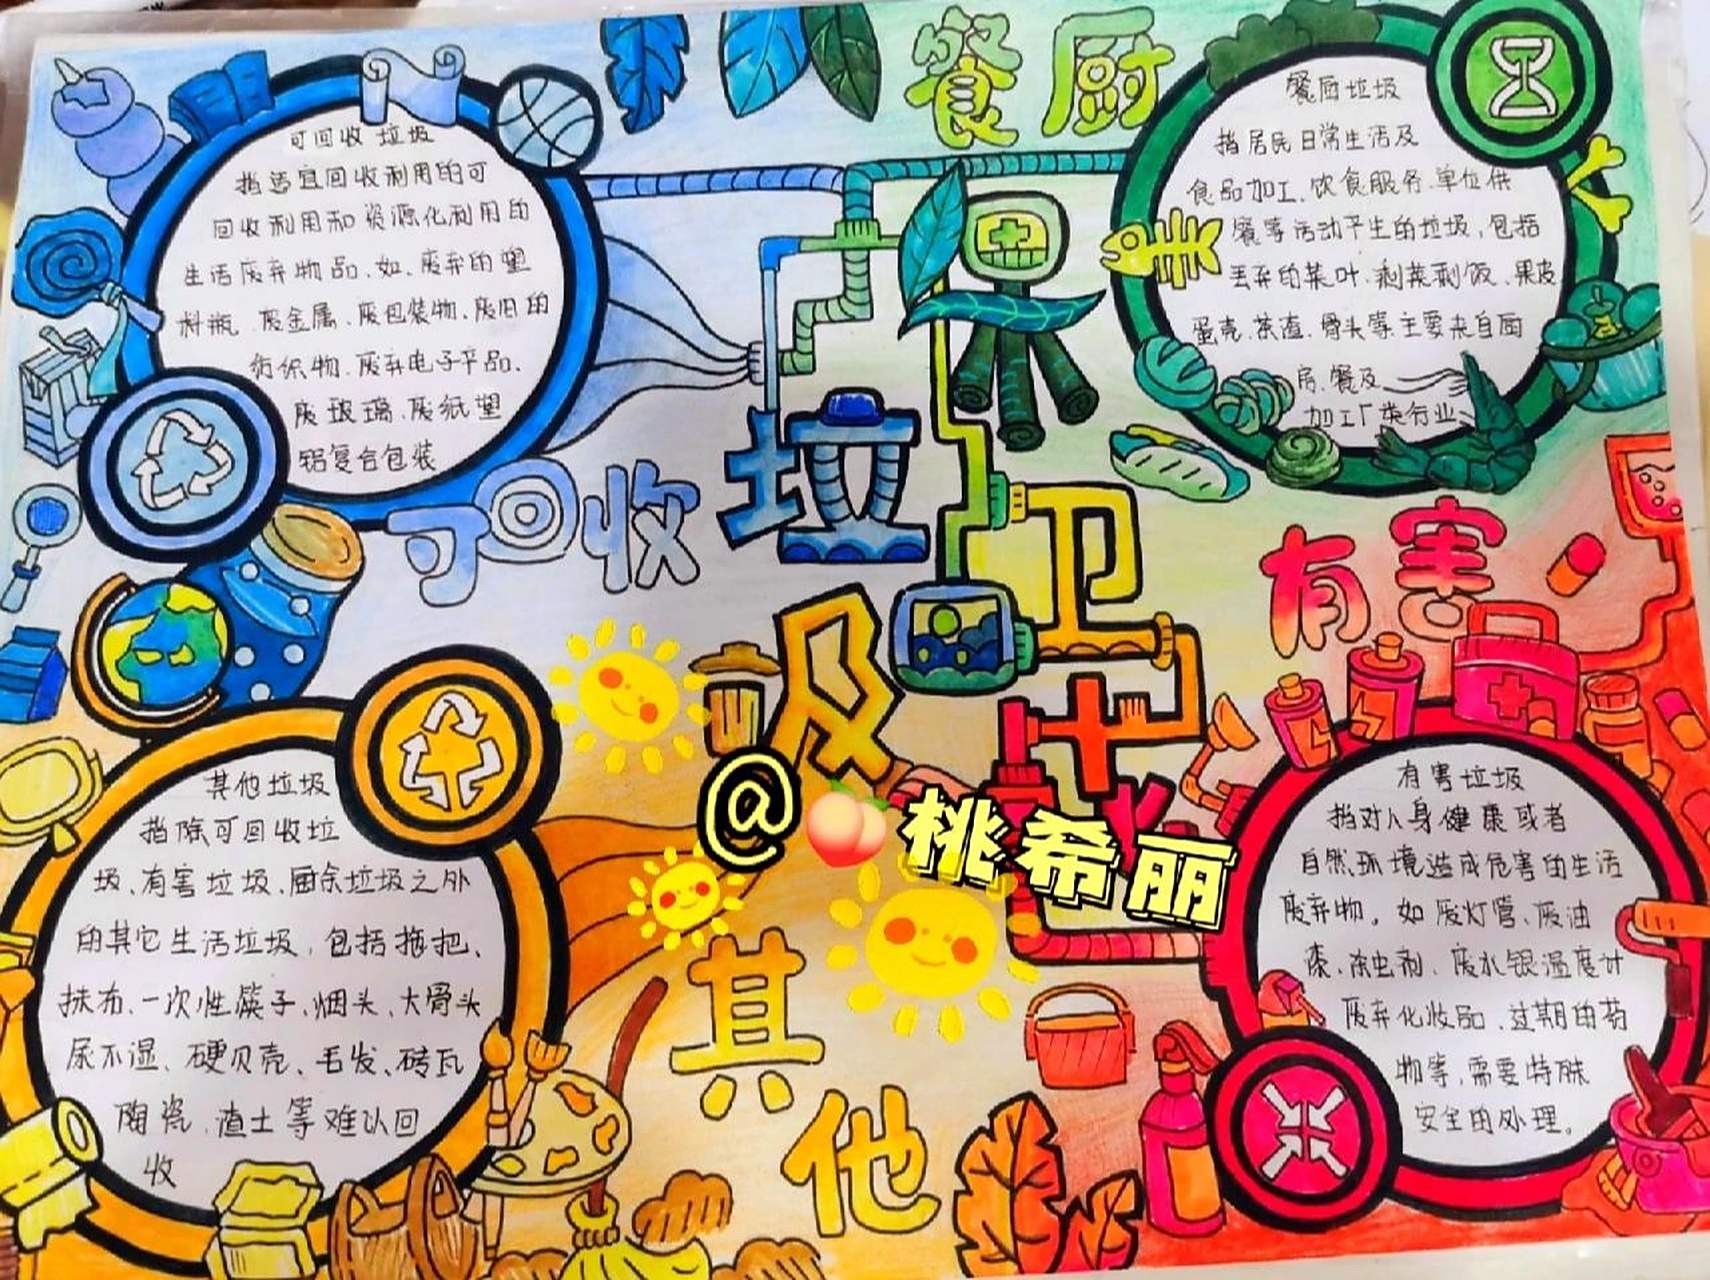 可回收垃圾
指适宜回收利用的可
回收利用和资源化利用的
生活废弃物品、如、废弃的塑
料瓶、废金属、废包装物、废旧的
纺织物、废弃电子产品、
废玻璃、废纸塑
铝复合包装
可回收
餐厨
餐厨垃圾
指居民日常生活及
食品加工、饮食服务、单位供
餐等活动产生的垃圾,包括
丢弃的菜叶、剩菜剩饭、果皮
蛋壳、茶渣、骨头等、主要来自厨
房、餐及
加工厂类行业
保
卫
垃
圾
有害
其他垃圾
指除可回收垃
圾、有害垃圾、厨余垃圾之外
的其它生活垃圾,包括拖把、
抹布、一次性筷子、烟头、大骨头
尿不湿、硬贝壳、毛发、砖瓦
陶瓷、渣土等难以回
收
其他
有害垃圾
指对人身健康或者
自然环境造成危害的生活
废弃物。如废灯管、废油
漆、杀虫剂、废水银温度计
废弃化妆品、过期的药
物等,需要特殊
安全的处理。
@🍑桃希丽